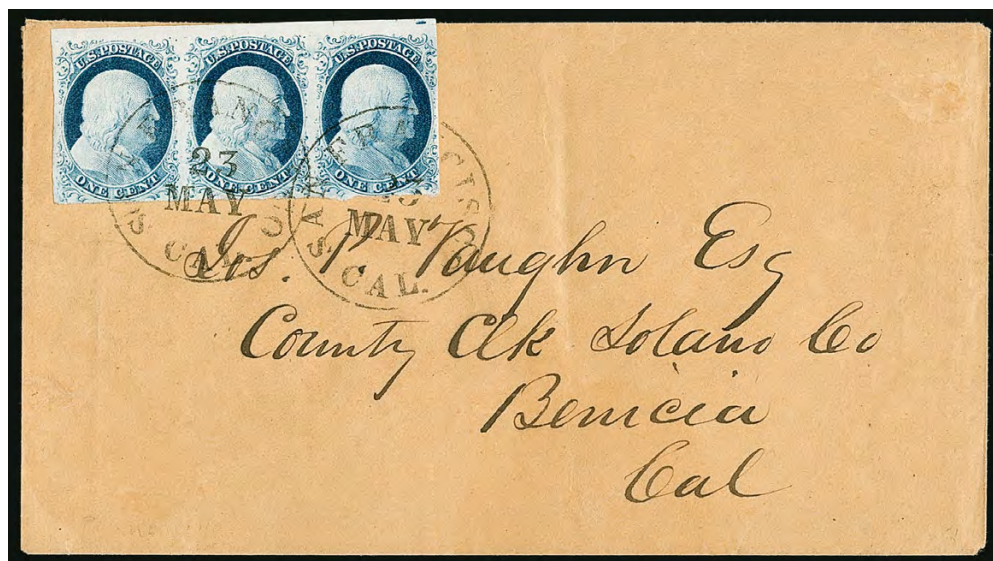 U.S. POSTAGE U.S. POSTAGE U.S. POSTAGE
ONE CENT ONE CENT ONE CENT
SAN FRANCISCO
23
MAY
CAL.
SAN FRANCISCO
23
MAY
CAL.
Jos. P. Vaughn Esq
County Clk Solano Co
Benicia
Cal